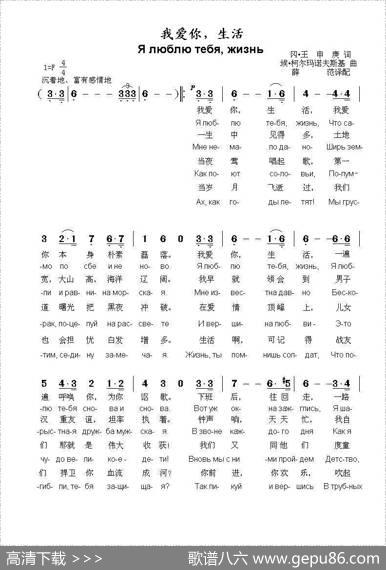 我爱你，生活
Я люблю тебя, жизнь
冈•王 申 庚 词
埃•柯尔玛诺夫斯基 曲
薛 范译配
1=F 4/4
沉着地、富有感情地
(3·3 6 - - 3 3 3 6 - -) 3·3 6 - - 1·6 4 - 4·4
我爱 你， 生 活， 我爱
Я люб- лю те-бя, жизнь, Что са-
一生 中 见得 多， 土地
Мне не- ма- по да-но Ширь зем-
当夜 莺 唱起 歌， 第一
Как по- ют со-ло- вьи, По-лум-
当岁 月 飞逝 过， 我们
Ах, как го- ды ле- тят! Мы грус-
3 2·1 7 6·7 1 6 0 3·3 6 - - 1·6 6 - 6·6
你 本 身 朴素 磊 落。 我爱 你， 生 活， 一遍
-мо по себе и не но- во. Я люб- лю те-бя, жизнь, Я люб-
宽， 大山 高， 海洋 辽 阔。 我早 就 领会 到 男子
-ли и рав-ни- на мор-ска- я. Мне из- вест-на дав- но Бес-ко-
道 曙光， 把 黑夜 冲 破。 在爱 情 顶峰 上， 儿女
-рак, по-це- луй на рас- све- те И вер- ши- на люб- ви - Э-то
也 会担 忧 白发 增 多。 生活 啊， 可记 得 战友
-тим, се-ди- ну за-ме- ча- я. Жизнь, ты пом- нишь сол- дат, Что по-
5 4·3 2 1·2 4 3 0 3·3 6 - - 6·♯5 6 - 4·4
遍 呼唤 你， 为你 讴 歌。 下班 后， 往回 走， 一路
-лю те-бя сно-ва и сно- ва. Вот уж ок- на за-ж- глись, Я ша-
汉 重友 谊， 坦率 执 着。 钟声 响， 天天 忙， 我自
-рыст-на- я друж-ба муж-ска- я. В зво-не каж-до- го дня Как я
们 那就 是 伟大 收 获！ 我们 又 同他 们 度童
чу-до ве-ли- ко- е- де- ти! Вновь мы с ни- ми прой- дем Детс-тво,
们 捍卫 你 血流 成 河？ 你前 进， 你欢 乐， 吹起
-гиб-ли, те-бя за-щи- ща- я? Так ли- куй и вер- шись В труб-ных
高清下载 >>>
歌谱八六 www.gepu86.com